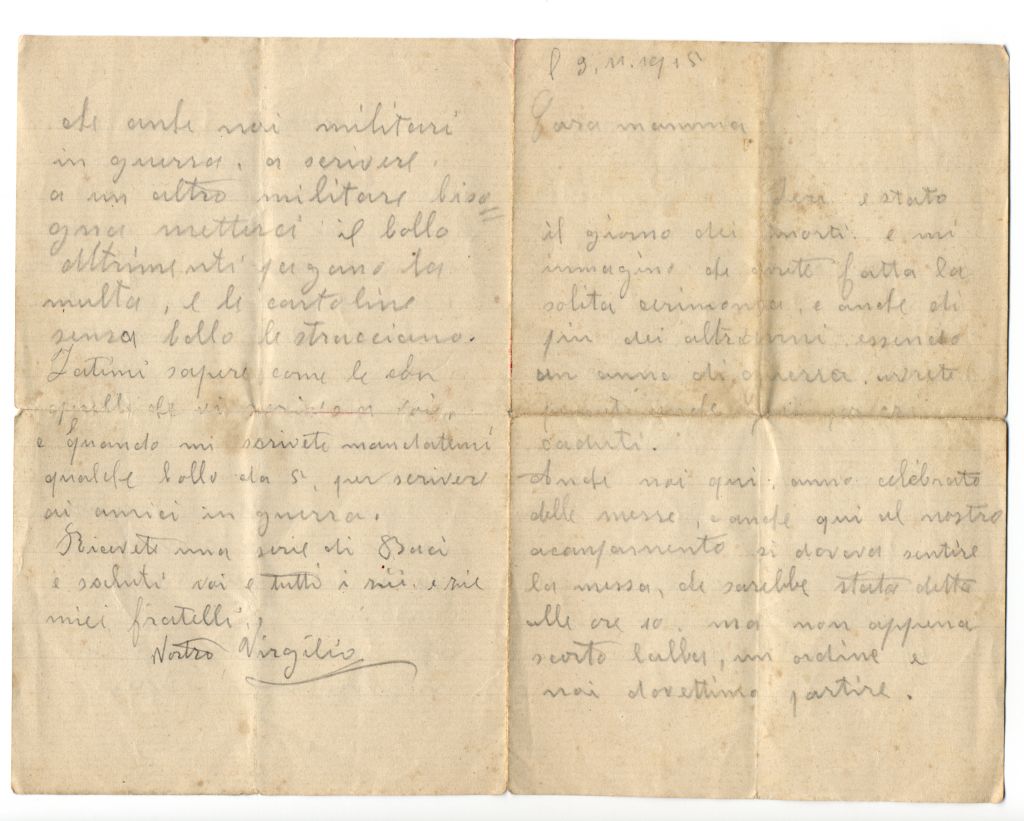 l 3.11.1915
Cara mamma
Ieri e stato
il giorno dei morti. e mi
immagino che avrete fatta la
solita cerimonia, e anche di
piu dei altri anni essendo
un anno di guerra. avrete
caduti.
Anche noi qui, anno celebrato
delle messe, e anche qui al nostro
acanpamento si doveva sentire
la messa, che sarebbe stata detta
alle ore 10. ma non appena
scorto l'alba, un ordine e
noi dovettimo partire.
che anche noi militari
in guerra. a scrivere
a un altro militare biso=
gna metterci il bollo
altrimenti pagano la
multa, e le cartoline
senza bollo le stracciano.
Fatimi sapere come le
quelle che vi scrivo a voi.
e Quando mi scrivete mandatemi
qualche bollo da 5, per scriver
ai amici in guerra.
Ricevete una serie di Baci
e saluti voi e tutti i zii. e zie
miei fratelli.
Vostro Virgilio